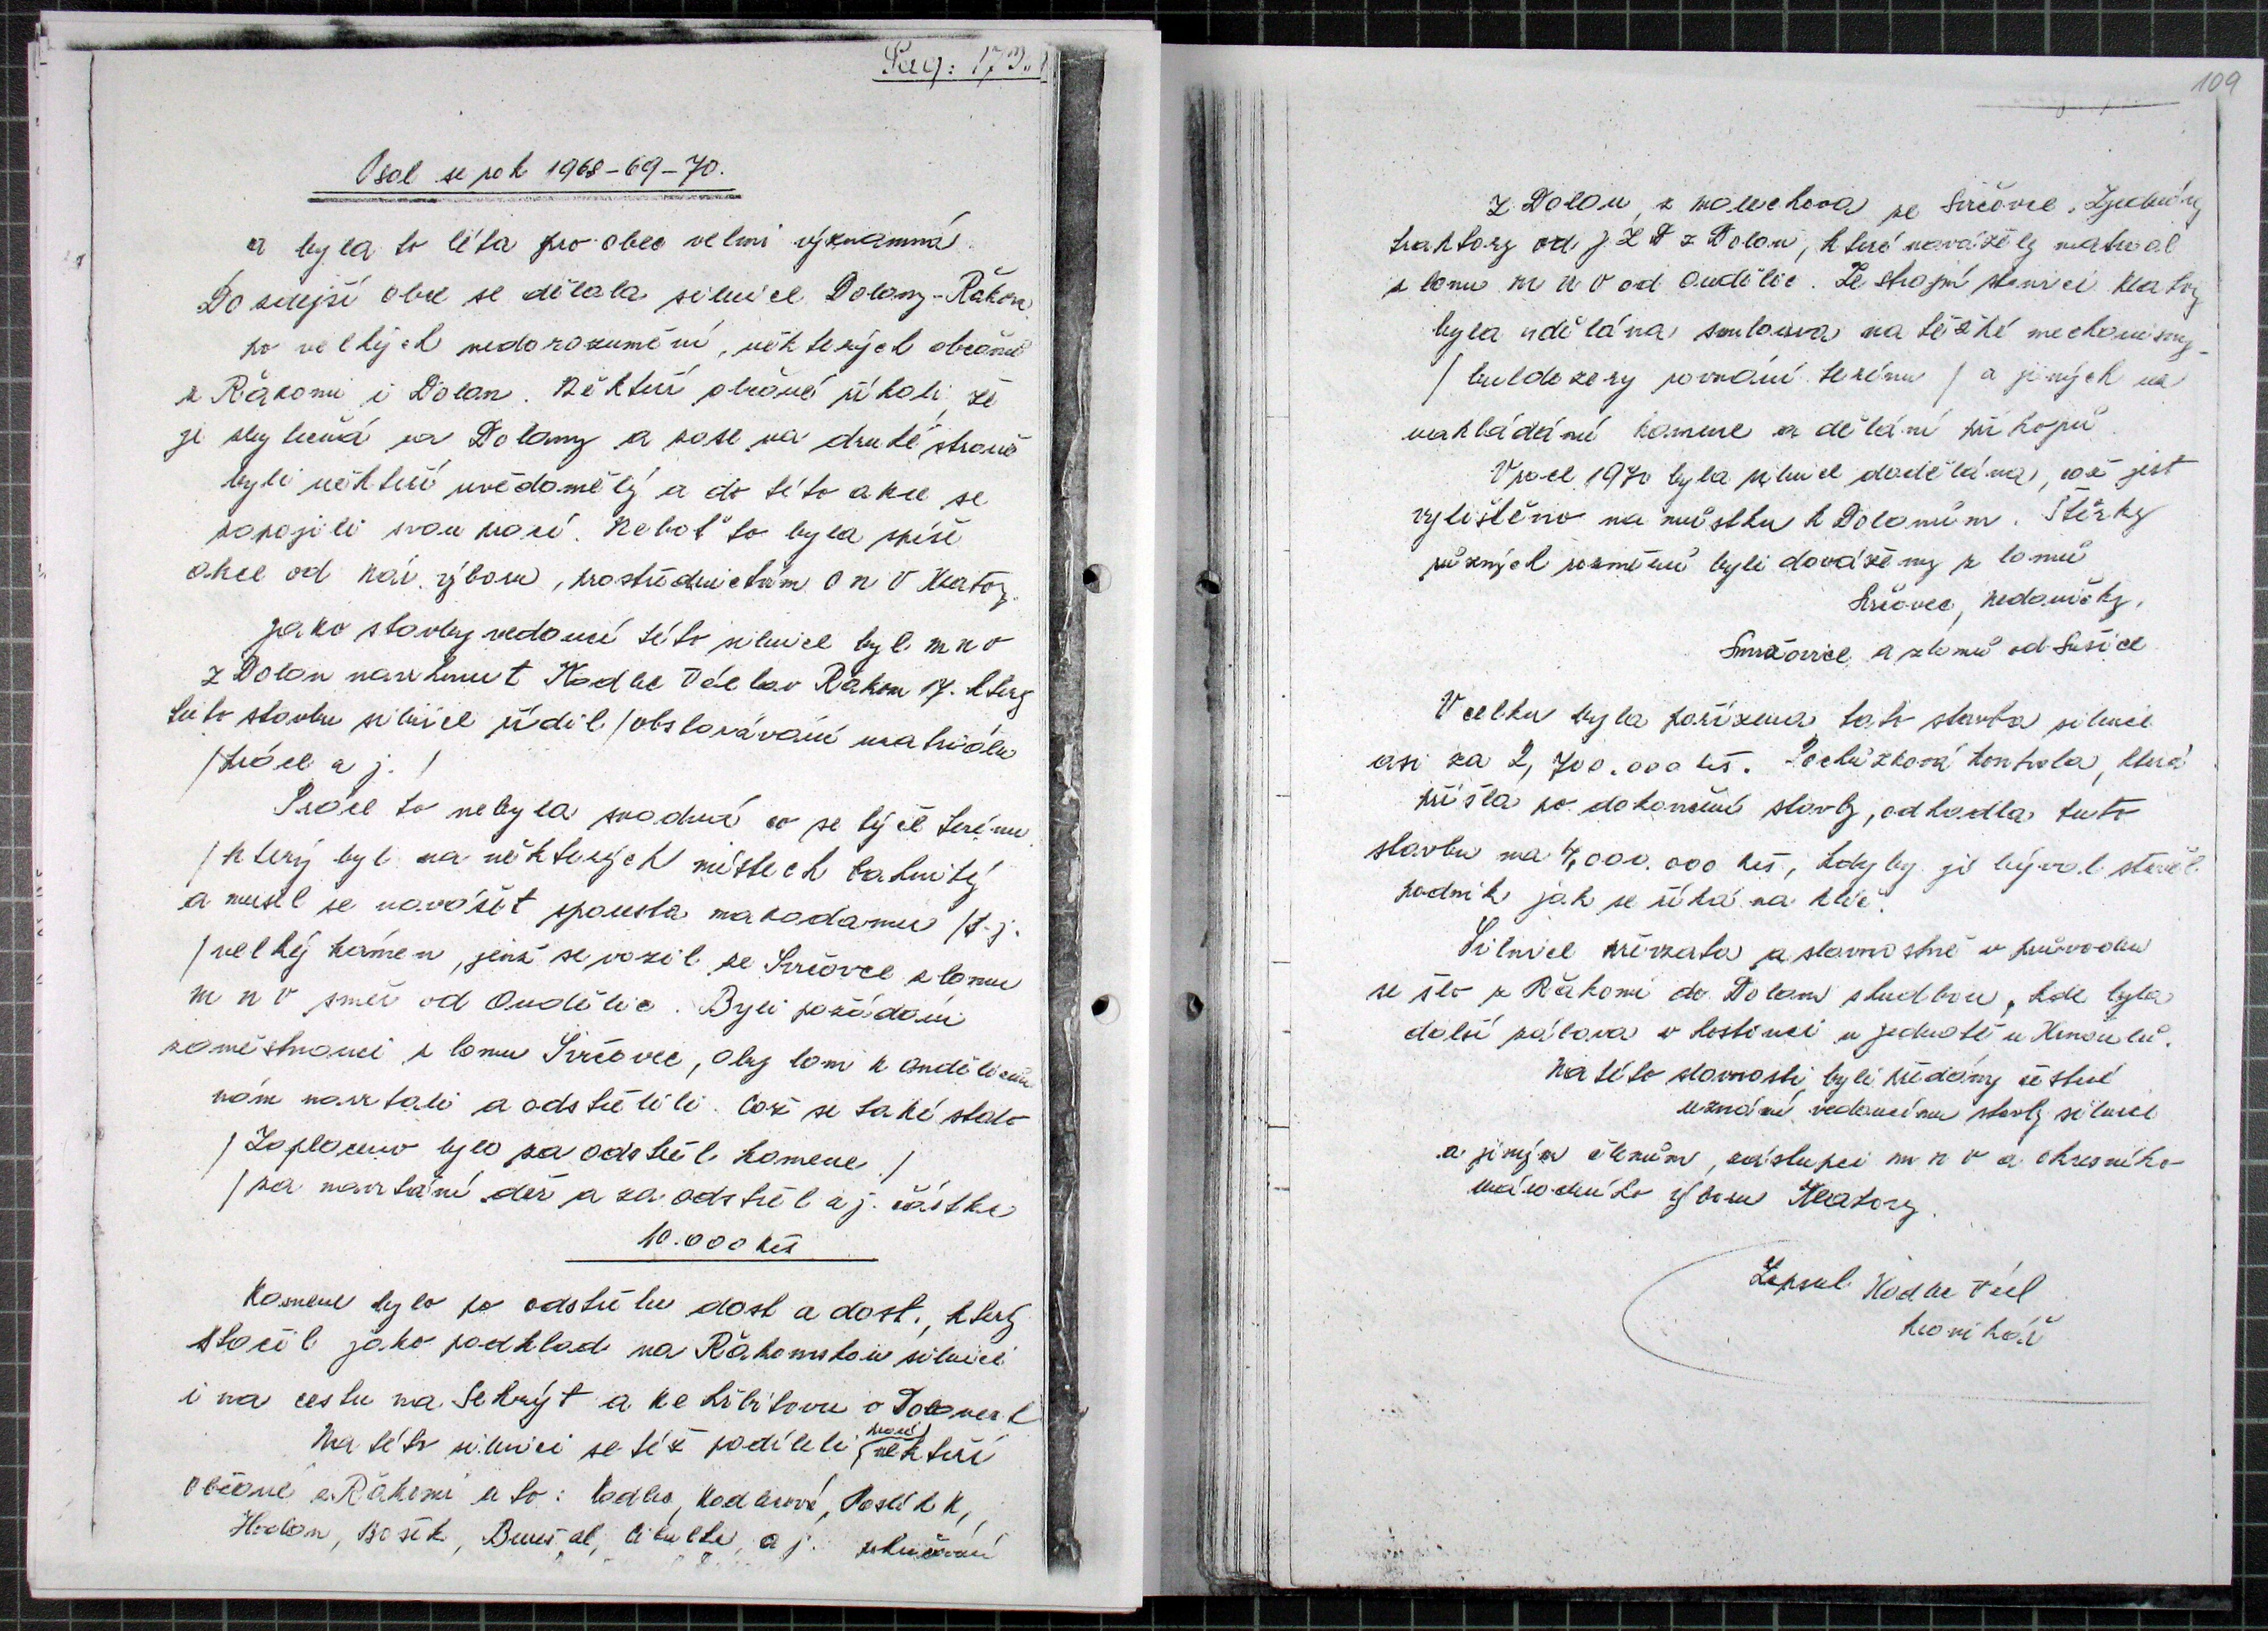 Pag: 173.
Psal se rok 1968-69-70.
a byla to léta pro obec velmi významná.
Do zdejší obce se dělala silnice Dolany-Řákom
po velkých nedorozumění, některých občanů
z Řákomi i Dolan. Někteří občané říkali, že
je zbytečná na Dolany a zase na druhé straně
byli někteří uvědomělý a do této akce se
zapojili svou prací. Neboť to byla spíše
akce od nár. výboru, prostřednictvím O N V Klatovy.
Jako stavby vedoucí této silnice byl M N V
z Dolan navrhnut Kadlec Václav Řákom 17. který
tuto stavbu silnice řídil /obstarávání materiálu
/práce a j. /
Práce to nebyla snadná co se týče terénu
/který byl na některých místech bahnitý
a musel se navážet spousta makadamu /t. j.
/velký kámen, jenž se vozil ze Svrčovce z lomu
M N V směr od Andělic. Byli požádáni
zaměstnanci z lomu Svrčovec, aby lom k Andělicům
nám navrtali a odstřelili. Což se také stalo
/Zaplaceno bylo za odstřel kamene /
/za navrtání děr a za odstřel a j. částka
10.000 Kčs
Kamene bylo po odstřelu dost a dost., který
stačil jako podklad na Řákomskou silnici
i na cestu na Sekrýt a ke hřbitovu v Dolanech
Na této silnici se též podíleli prací někteří
občané z Řákomi a to: Kadlec, Kadlecová,
Hodan, Bošek, Cibulka, a j.
109
Z Dolan, z Malechova ze Svrčovce. Zjednány
traktory od J Z D z Dolan, které navážely materiál
z lomu M N V od Andělic. Ze strojní stanicí Klatovy
byla udělána smlouva na těžké mechanismy-
/buldozery rovnání terénu / a jiných na
nakládání kamene a dělání příkopů.
V roce 1970 byla silnice dodělána, což jest
vyúštěno na můstku k Dolanům. Štěrky
různých rozměrů byli dováženy z lomů
Svrčovec, Nedaničky,
Smržovice a z lomů od Sušice
V celku byla pořízena tato stavba silnice
asi za 2,700.000 Kčs. Pochůzková kontrola, která
přišla po dokončení stavby, odhadla tuto
stavbu na 4,000.000 Kčs, kdyby ji býval stavěl
podnik jak se říká na klíč.
Silnice převzata a slavnostně v průvodu
se šlo z Řákomi do Dolan s hudbou, kde byla
další zábava v hostinci u jednotě u
Na této slavnosti byli předány čestné
uznání vedoucímu stavby silnice
a jiným členům, zástupci M N V a okresního
národního výboru Klatovy.
Zapsal Kadlec Václ
kronikář